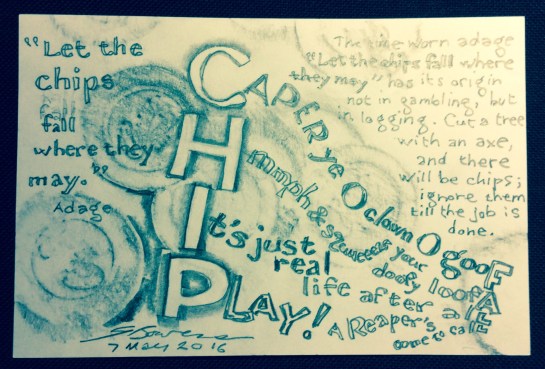 "Let the
chips
fall
where they
may."
Adage
CAPER ye O clown O gooF
Hmmph & your doofy loofA
It's just real life after alL
PLAY! A Reaper's come to calL
The time worn adage
"Let the chips fall where
they may" has its origin
not in gambling, but
in logging. Cut a tree
with an axe,
and there
will be chips;
ignore them
till the job is
done.
7 May 2016